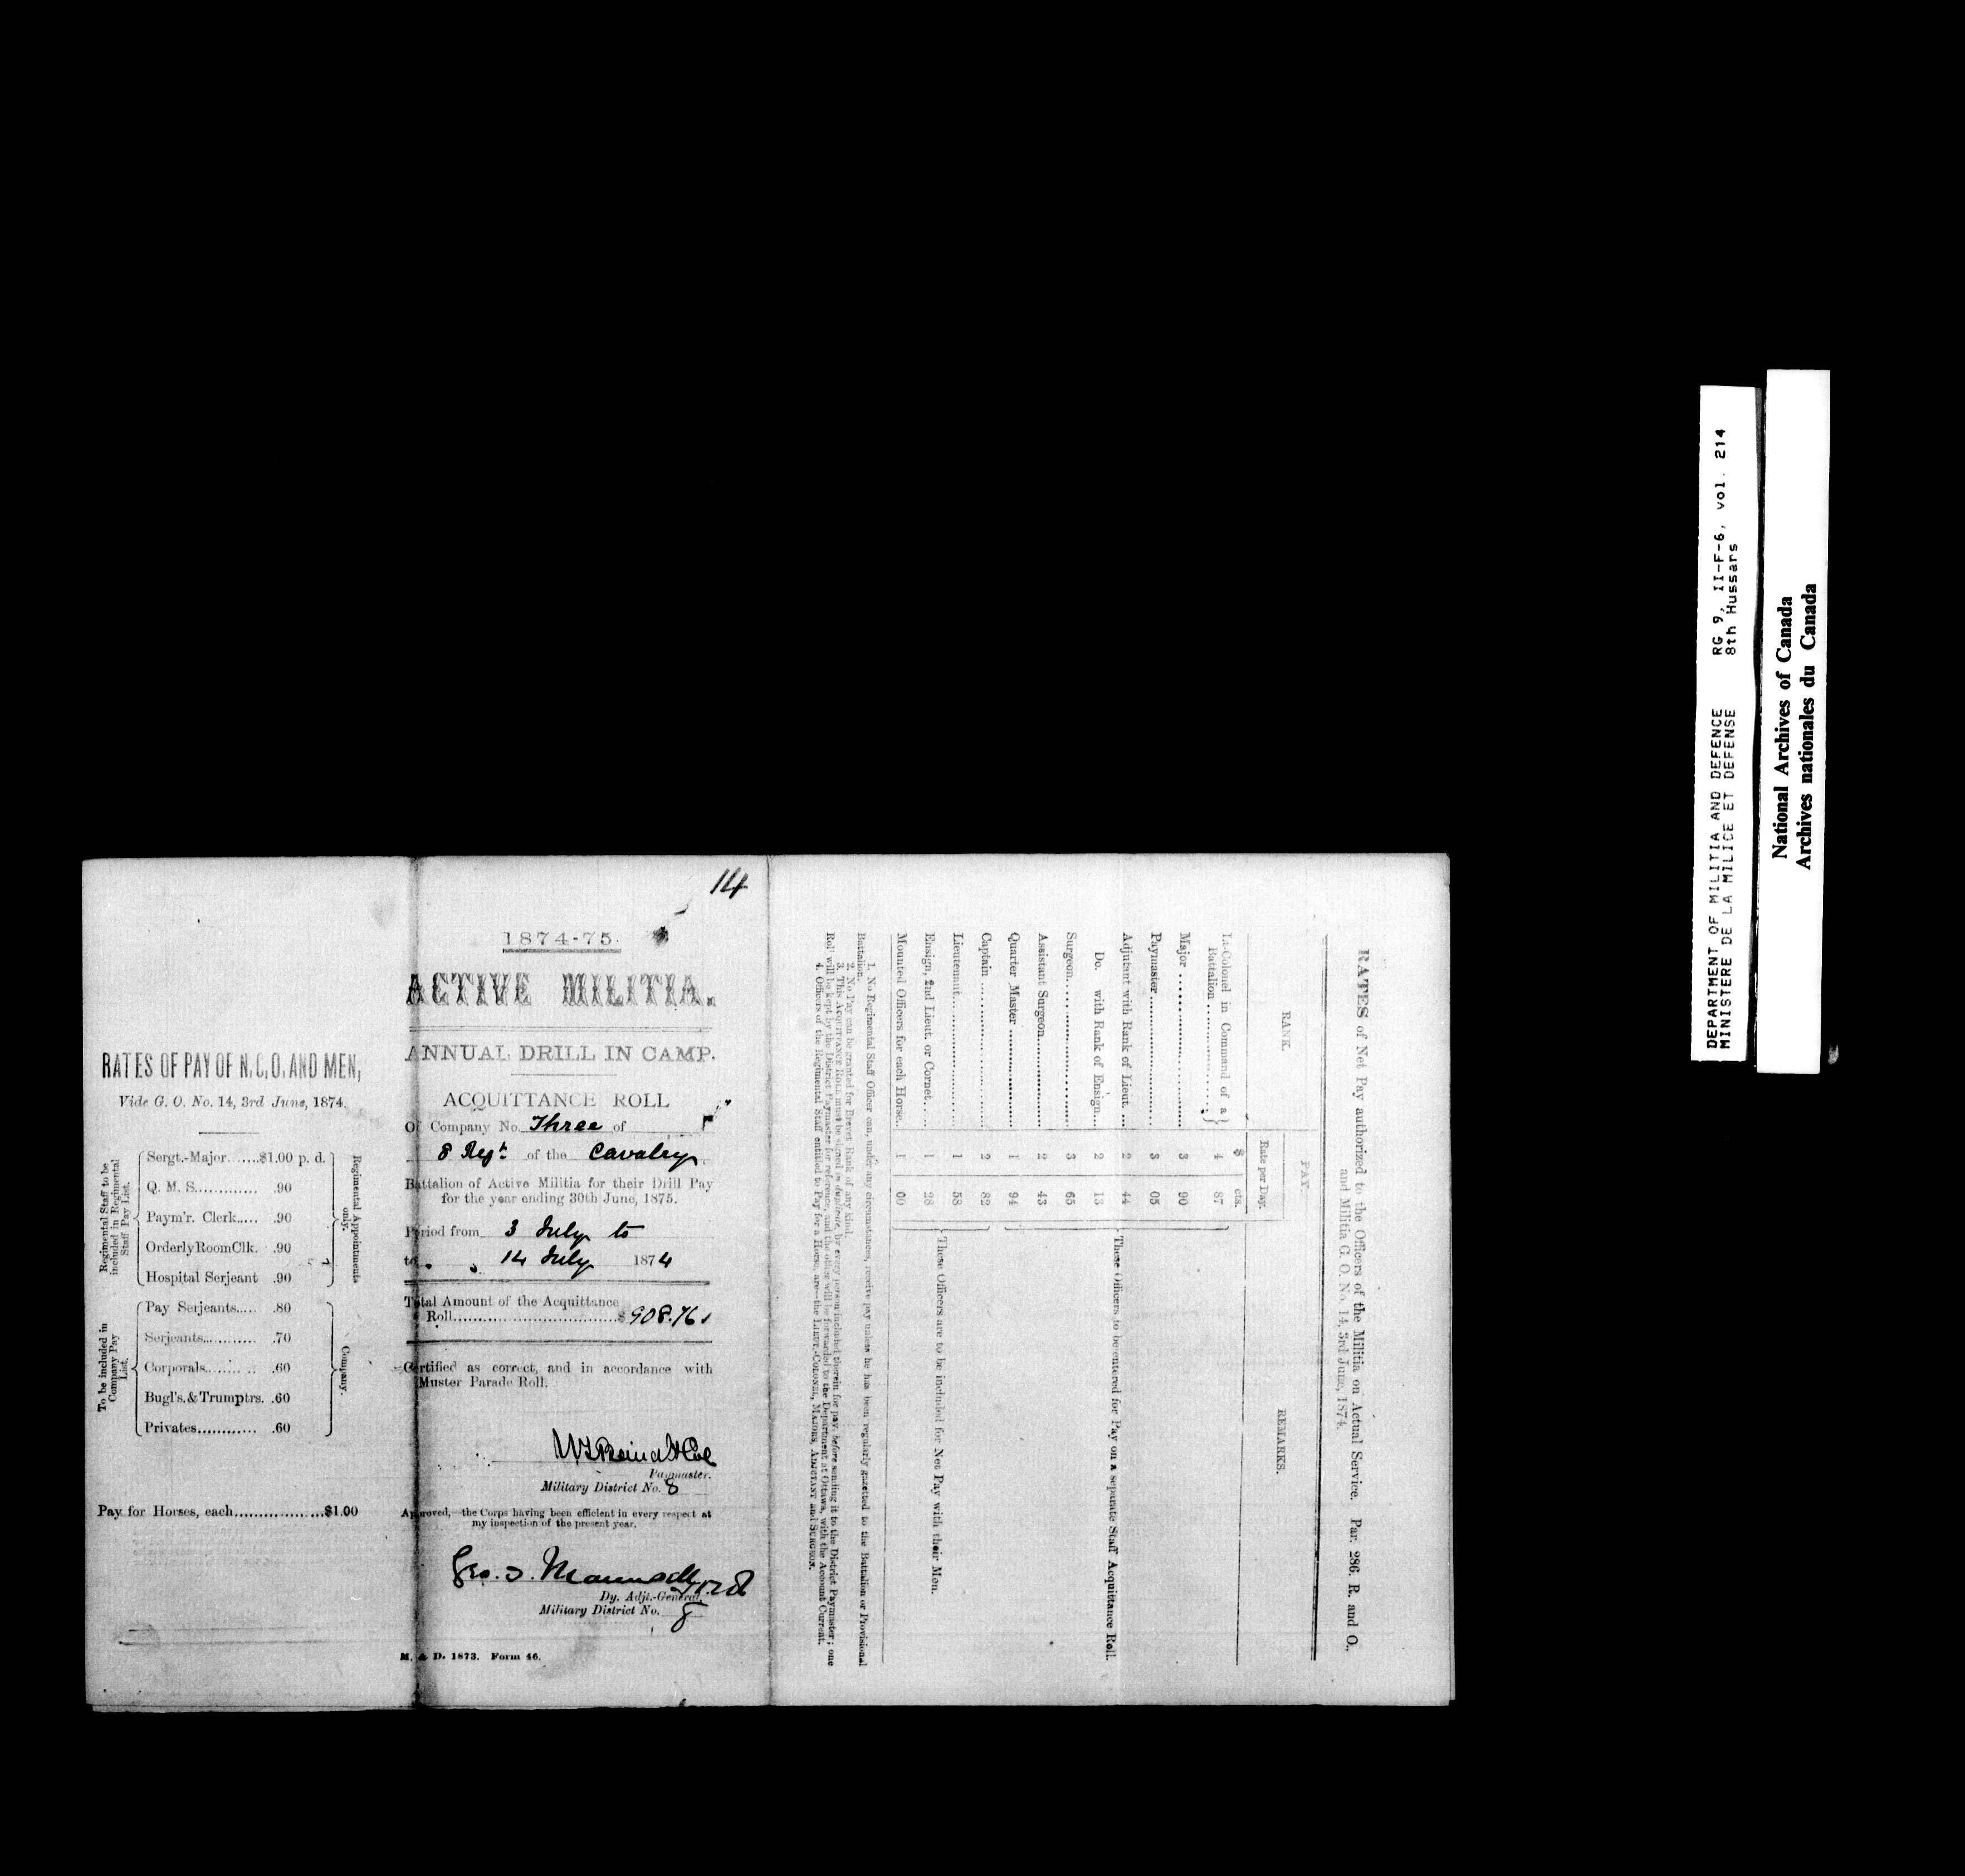 14
RATES OF PAY OF N.C.O. AND MEN,
Vide G. O. No. 14, 3rd June, 1874.
Regimental Staff to be
included in Regimental
Staff Pay List.
Sergt.-Major.......$1.00 p. d.
Q. M. S............. .90
Paym'r. Clerk..... .90
Orderly Room Clk. .90
Hospital Serjeant .90
Regimental Appointments
only.
To be included in
Company Pay
List.
Pay Serjeants..... .80
Serjeants........... .70
Corporals........... .60
Bugl's. & Trumptrs. .60
Privates............ .60
Company.
Pay for Horses, each.................$1.00
1874-75.
ACTIVE MILITIA.
ANNUAL DRILL IN CAMP.
ACQUITTANCE ROLL
Of Company No. Three of
8 Regt. of the Cavalry
Battalion of Active Militia for their Drill Pay
for the year ending 30th June, 1875.
Period from 3 July to
to 14 July 1874
Total Amount of the Acquittance
Roll.................................$ 908.76
Certified as correct, and in accordance with
Muster Parade Roll.
Paymaster.
Military District No. 8
Approved,—the Corps having been efficient in every respect at
my inspection of the present year.
Dy. Adjt.-General,
Military District No. 8
M. & D. 1873. Form 46.
RATES of Net Pay authorized to the Officers of the Militia on Actual Service. Par. 286. R. and O.,
and Militia G. O. No. 14, 3rd June, 1874.
RANK.
PAY.
Rate per Day.
REMARKS.
$ cts.
Lt.-Colonel in Command of a
Battalion ............... 4 87
Major ............... 3 90
Paymaster............... 3 05
Adjutant with Rank of Lieut. ... 2 44
Do. with Rank of Ensign.... 2 13
Surgeon............... 3 65
Assistant Surgeon............... 2 43
Quarter Master ............... 1 94
These Officers to be entered for Pay on a separate Staff Acquittance Roll.
Captain ............... 2 82
Lieutenant............... 1 58
Ensign, 2nd Lieut. or Cornet.... 1 28
These Officers are to be included for Net Pay with their Men.
Mounted Officers for each Horse.. 1 00
1. No Regimental Staff Officer can, under any circumstances, receive pay unless he has been regularly gazetted to the Battalion or Provisional
Battalion.
2. No Pay can be granted for Brevet Rank of any kind.
3. This ACQUITTANCE ROLL must be signed in duplicate, by every person included therein for pay, before sending it to the District Paymaster; one
Roll will be kept by the District Paymaster for reference, and the other will be forwarded to the Department at Ottawa, with the Account Current.
4. Officers of the Regimental Staff entitled to Pay for a Horse, are—the LIEUT.-COLONEL, MAJORS, ADJUTANT and SURGEON.
DEPARTMENT OF MILITIA AND DEFENCE RG 9, II-F-6, vol. 214
MINISTERE DE LA MILICE ET DEFENSE 8th Hussars
National Archives of Canada
Archives nationales du Canada